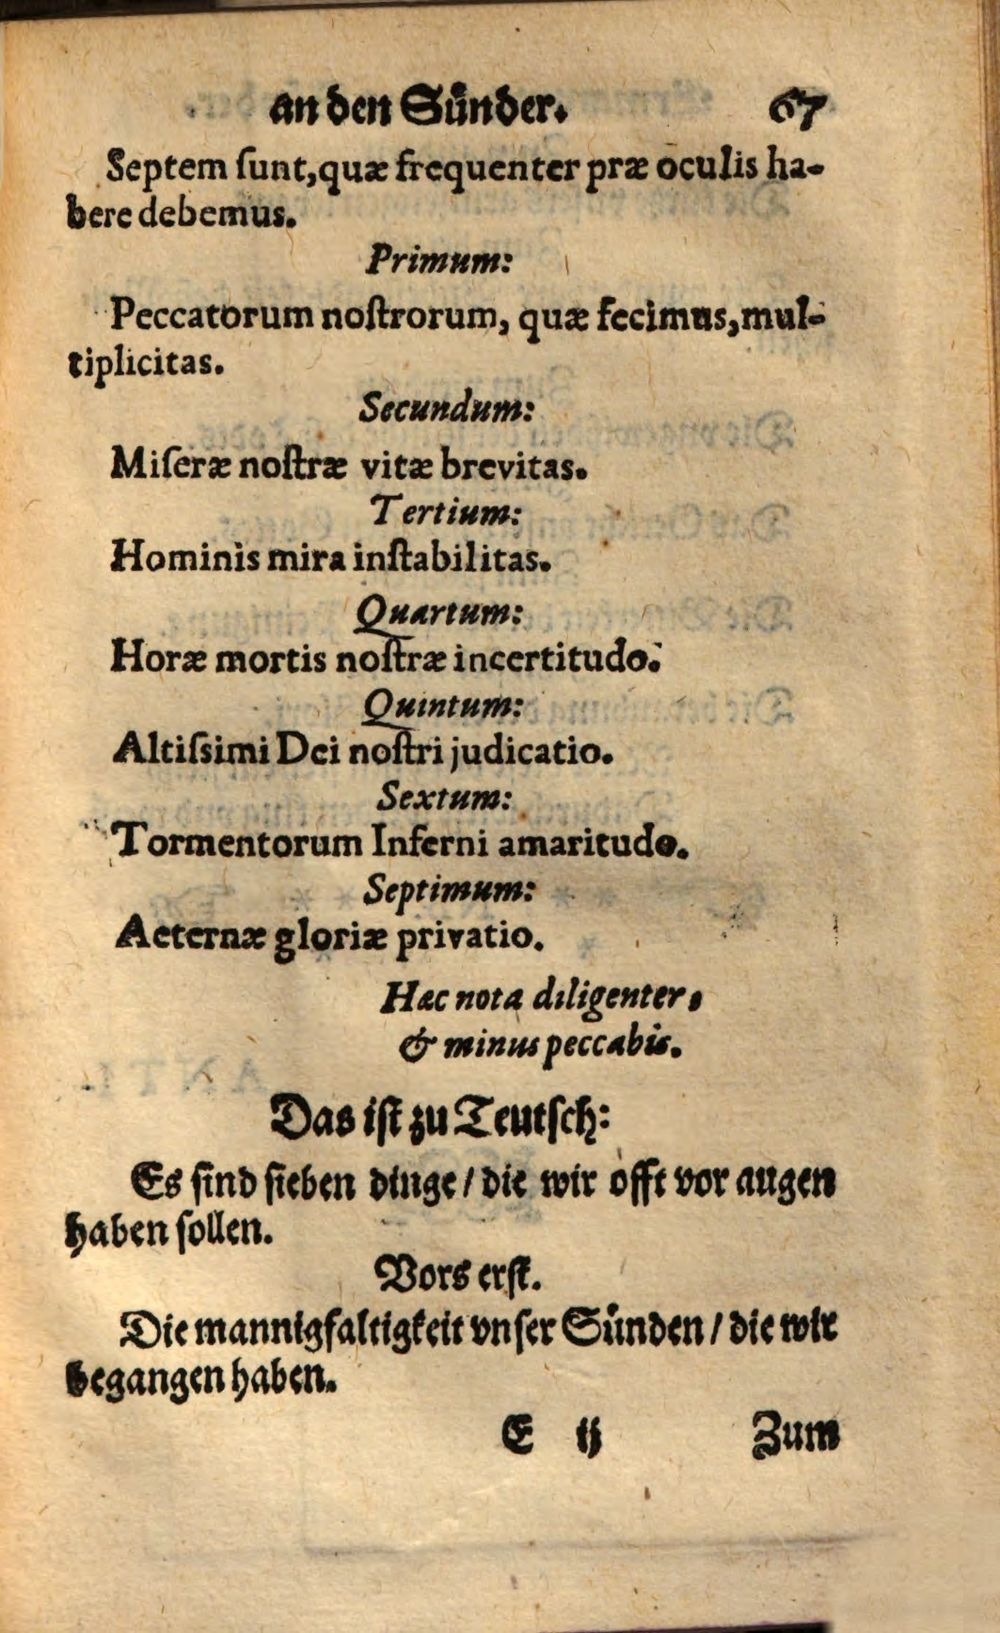 an den Sünder. 67
Septem ſunt, quæ frequenter præ oculis ha-
bere debemus.
Primum:
Peccatorum noſtrorum, quæ fecimus, mul-
tiplicitas.
Secundum:
Miſeræ noſtræ vitæ brevitas.
Tertium:
Hominis mira inſtabilitas.
Quartum:
Horæ mortis noſtræ incertitudo.
Quintum:
Altiſsimi Dei noſtri judicatio.
Sextum:
Tormentorum Inferni amaritudo.
Septimum:
Aeternæ gloriæ privatio.
Hæc nota diligenter,
& minus peccabis.
Das iſt zu Teutſch:
Es ſind ſieben dinge / die wir offt vor augen
haben ſollen.
Vors erſt.
Die mannigfaltigkeit vnſer Sünden / die wir
begangen haben.
E ij Zum